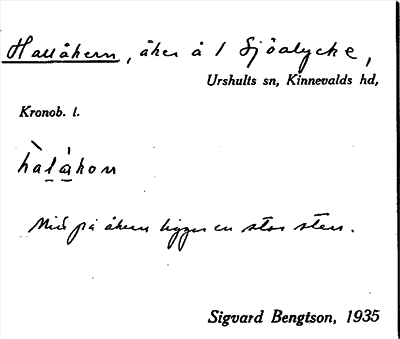 Hallåkern, åker å 1 Sjöalycke,
Urshults sn, Kinnevalds hd,
Kronob. l.
hàlåkon
Mitt på åkern ligger en stor sten.
Sigvard Bengtson, 1935